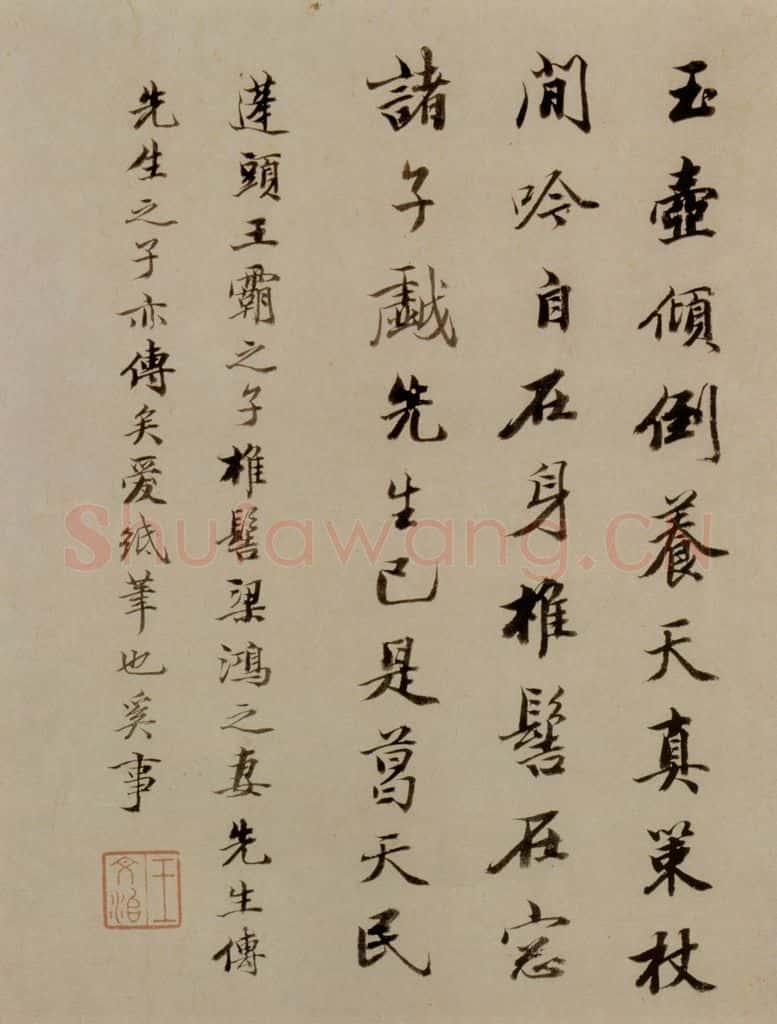 玉壺傾倒養天真策杖
閒吟自在身椎髻在窓
諸子戱先生已是葛天民
蓬頭王霸之子椎髻梁鴻之妻先生傳
先生之子亦傳矣爰紙筆也奚事
王文治
Shufawang.CN